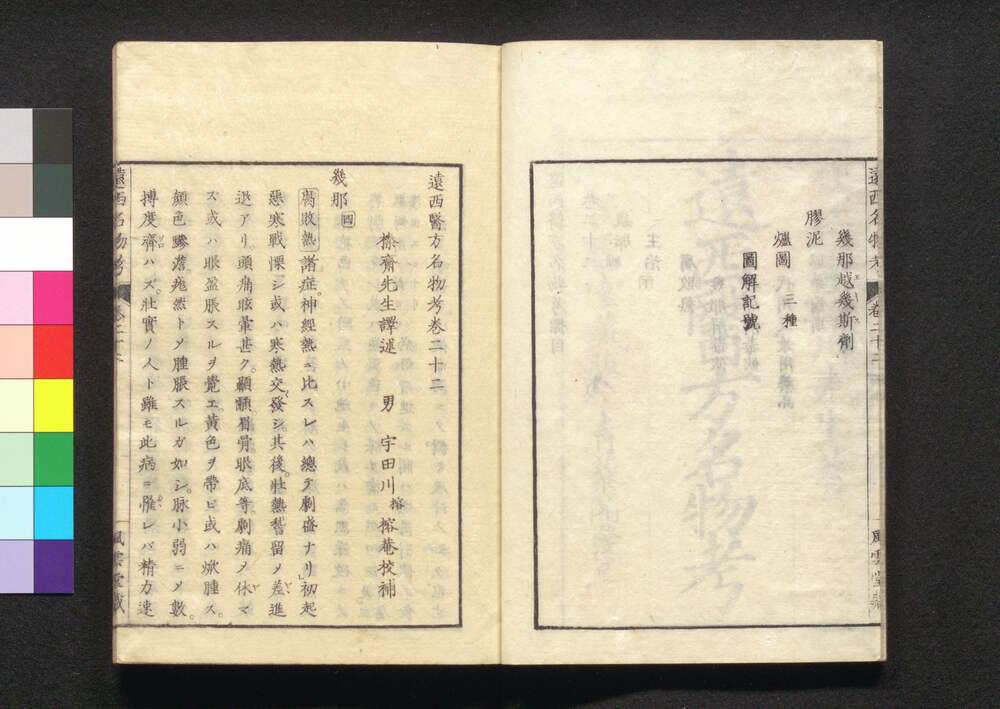 遠西名物考
卷二十二
風雲堂藏
幾那越幾斯劑
膠泥
爐圖 三種
圖解記號
遠西醫方名物考卷二十二
榛齋先生譯述 男 宇田川 榕 榕菴校補
幾那 四
腐敗熱諸症神經熱ニ比スレハ總テ劇盛ナリ初起
惡寒戰慄シ或ハ寒熱交發シ其後壯熱稽留メ差進
退アリ頭痛眩暈甚ク顳顬眉骨眼底等劇痛メ休マ
ズ或ハ眼盈脹スルヲ覺エ黃色ヲ帶ビ或ハ焮腫ス。
顏色黲澹疱然トメ腫脹スルガ如シ。脉小弱ニメ數。
搏度齊ハズ。壯實ノ人ト雖モ此病ニ罹レバ精力速
遠西名物考
卷二十二
風雲堂藏